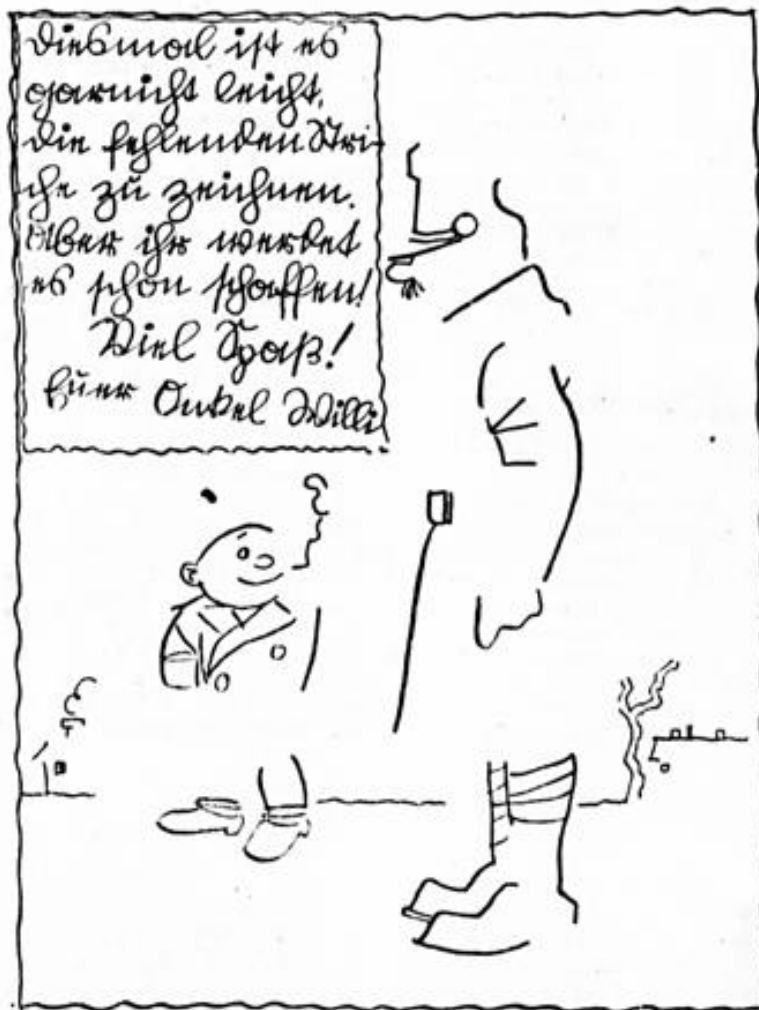 Diesmal ist es
garnicht leicht,
die fehlenden Stri-
che zu zeichnen.
Aber ihr werdet
es schon schaffen!
Viel Spaß!
Euer Onkel Willi